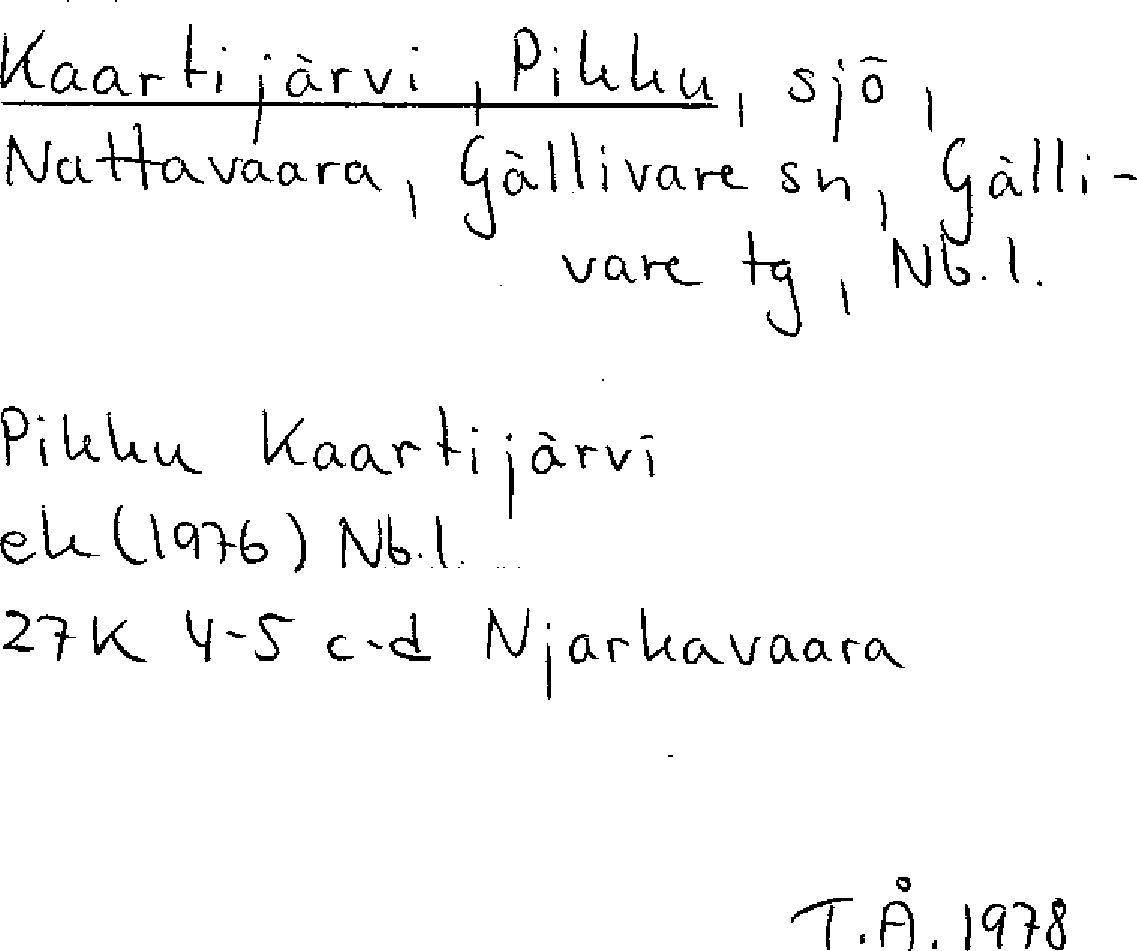 Kaartijärvi, Pikku, sjö,
Nattavaara, Gällivare sn, Gälli-
vare tg, Nb.l.
Pikku Kaartijärvi
ek (1976) Nb.l.
27K 4-5 c-d Njarkavaara
T.Å. 1978